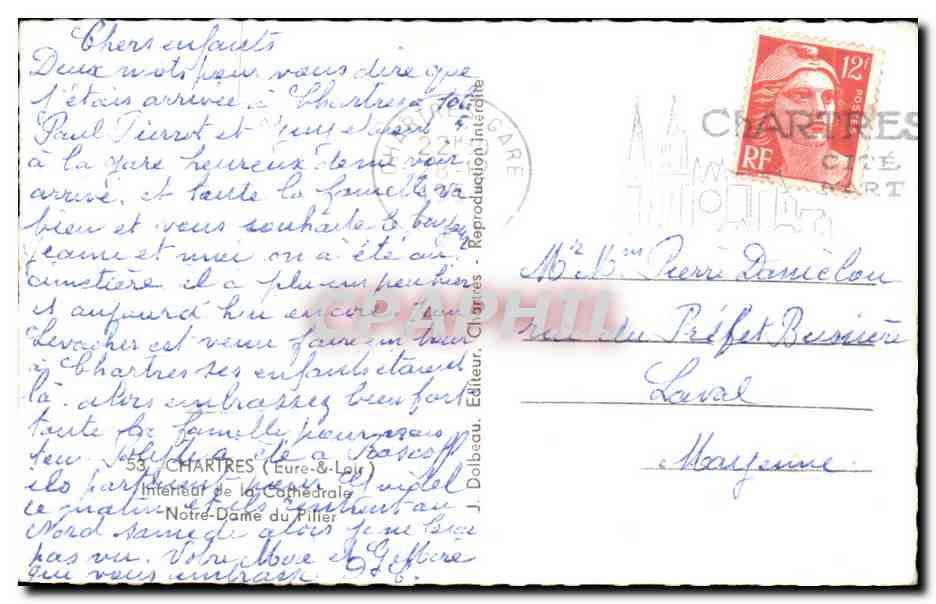 Chers enfants
Deux mots pour vous dire que
j'étais arrivée à Chartres a 10h
Paul Pierrot et
à la gare heureux de me voir
arrivé, et toute la famille va
bien et vous souhaite le
et moi on a été au
cimetière il a plu un peu hier
et aujourd'hui encore
Levacher est venu faire un tour
à Chartres ses enfants étaient
là. alors embrassez bien fort
toute la famille pour
a été a Roscoff
ils partent pour
ce matin et ils rentrent au
Nord samedi alors je ne
pas vu. Votre Mère et G Mère
qui vous embrasse
53. CHARTRES (Eure-&-Loir)
Intérieur de la Cathédrale
Notre-Dame du Pilier
J. Dolbeau. Editeur, Chartres - Reproduction interdite
CHARTRES GARE
22
CHARTRES
CITÉ
D'ART
12F
POSTES
RF
CPAPHIL
Mr Mme Pierre Daniélou
rue du Préfet Bussière
Laval
Mayenne